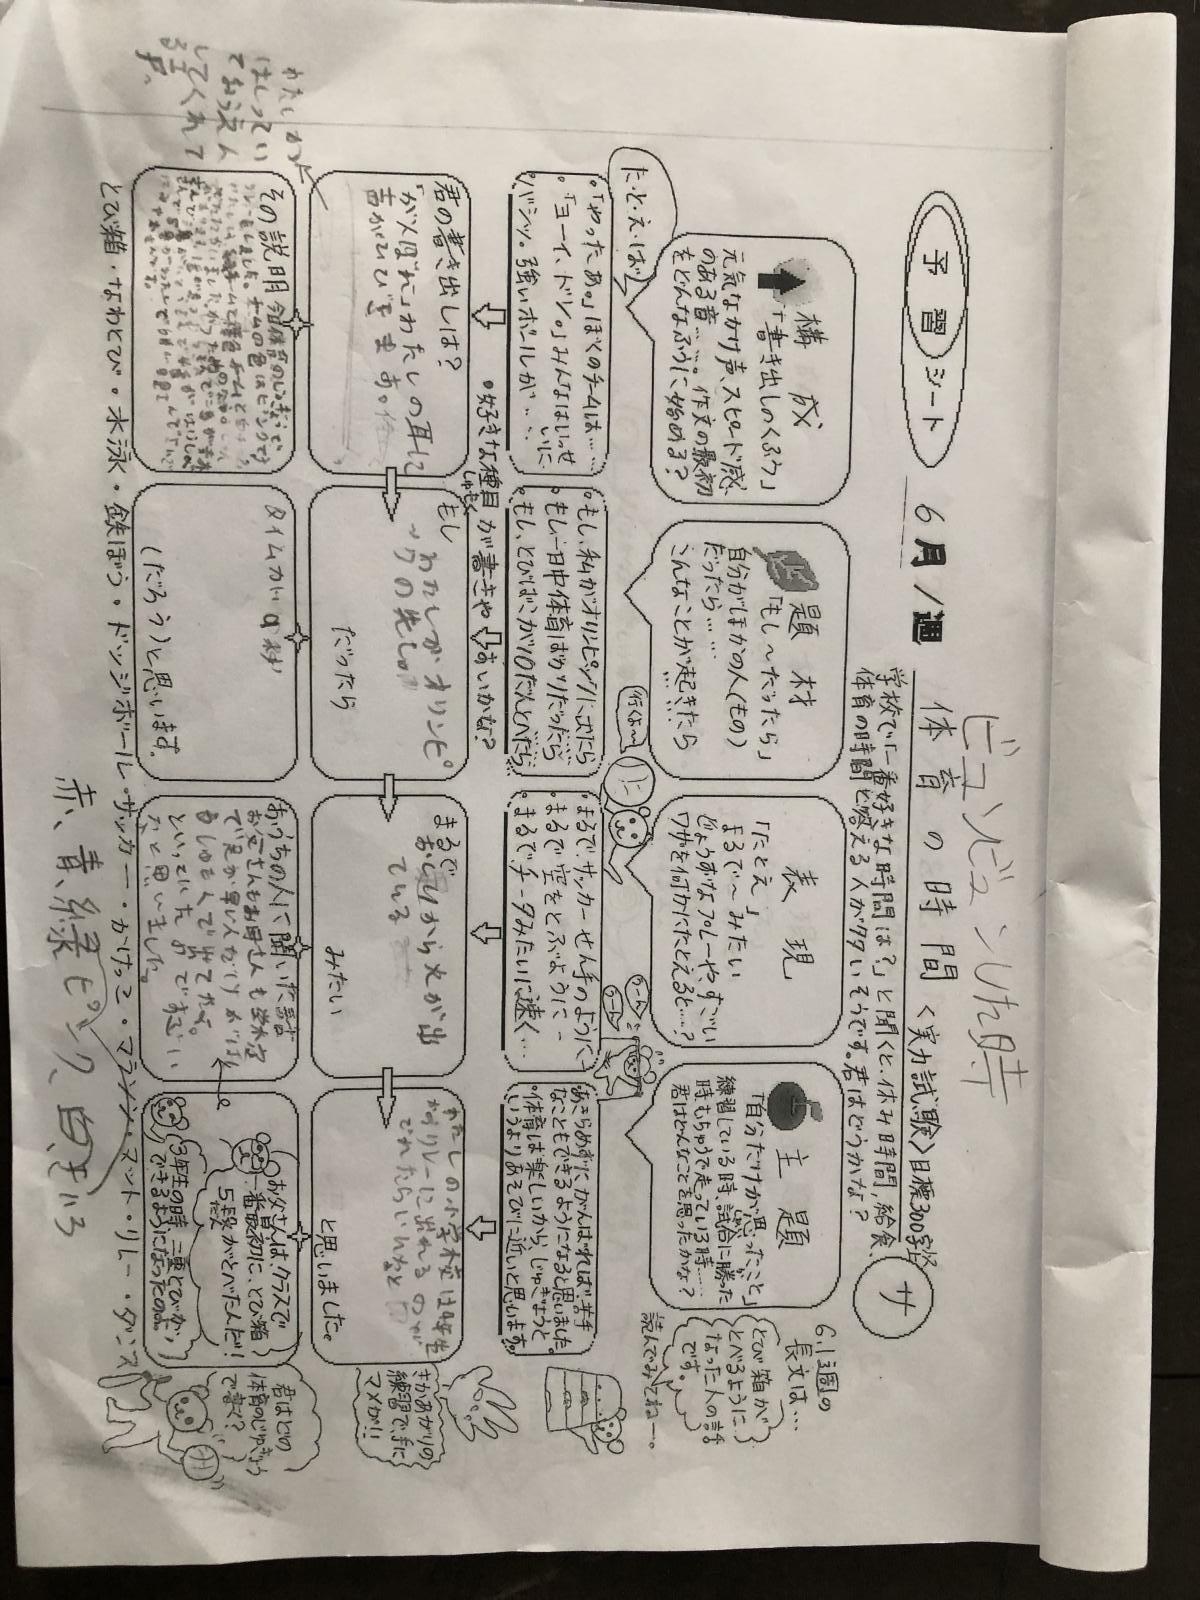 ビュンビュンした時
予習シート
6月1週
体育の時間
<実力試験>目標300字以上
サ
「学校で一番好きな時間は？」と聞くと、休み時間、給食、
体育の時間と答える人が多いそうです。君はどうかな？
構成
「書き出しのくふう」
元気なかけ声、スピード感
のある音……。作文の最初
をどんなふうに始める？
た・と・え・ば
題材
「もし〜だったら」
自分がほかの人（もの）
だったら……
こんなことが起きたら
……
表現
「たとえ」
まるで〜みたい
じょうずなプレーや、すごい
ワザを何かにたとえると…？
主題
「自分だけが思ったこと」
練習している時、試合に勝った
時、もちゅうで走っている時……
君はどんなことを思ったかな？
6.1週の
長文は…
とび箱が
とべるように
なった人の話
です。
読んでみてねー。
行くよ〜
うーん
うーん
。「やったあ。」ぼくのチームは……
。「ヨーイ、ドン。」みんなはいっせいに
。バシッ。強いボールが……
。もし、私がオリンピックに出たら
。もし一日中体育ばかりだったら
。もし、とびばこが10だんとべたら…
。まるでサッカーせん手のように
。まるで空をとぶように
。まるでチータみたいに速く…
あきらめずにがんばれば、苦手
なこともできるようになると思いました。
。体育は楽しいから、じゅぎょうと
いうよりあそびに近いと思います。
。好きな種目が書きやすいかな？
しゅもく
君の書き出しは？
「がんばれ」わたしの耳に
声がひびきます。
わたしが
はしってい
ておうえん
してくれて
る声、
もし
わたしがオリンピ
ックの先しゅ
だったら
まるで
おしりから火が出
ている
みたい
わたしの小学校は4年生
からリレーに出れるので
でれたらいいなと
と思いました。
その説明
タイムが9秒
（だろう）と思います。
おうちの人に聞いた話
お父さんもお母さんも学校
で足が早い人なり
せんしゅで出てたよ。
といっていたのですごい
なと思いました。
お父さんは、クラスで
一番最初に、とび箱
5段がとべたんだ！
だん
3年生の時、二重とびが
できるようになったのよ。
さかあがりの
練習で、手に
マメが!!
君はどの
体育のじゅぎょう
で書く？
とび箱・なわとび・水泳・鉄ぼう・ドッジボール・サッカー・かけっこ・マラソン・マット・リレー・ダンス
赤、青、緑、ピンク、白、きいろ